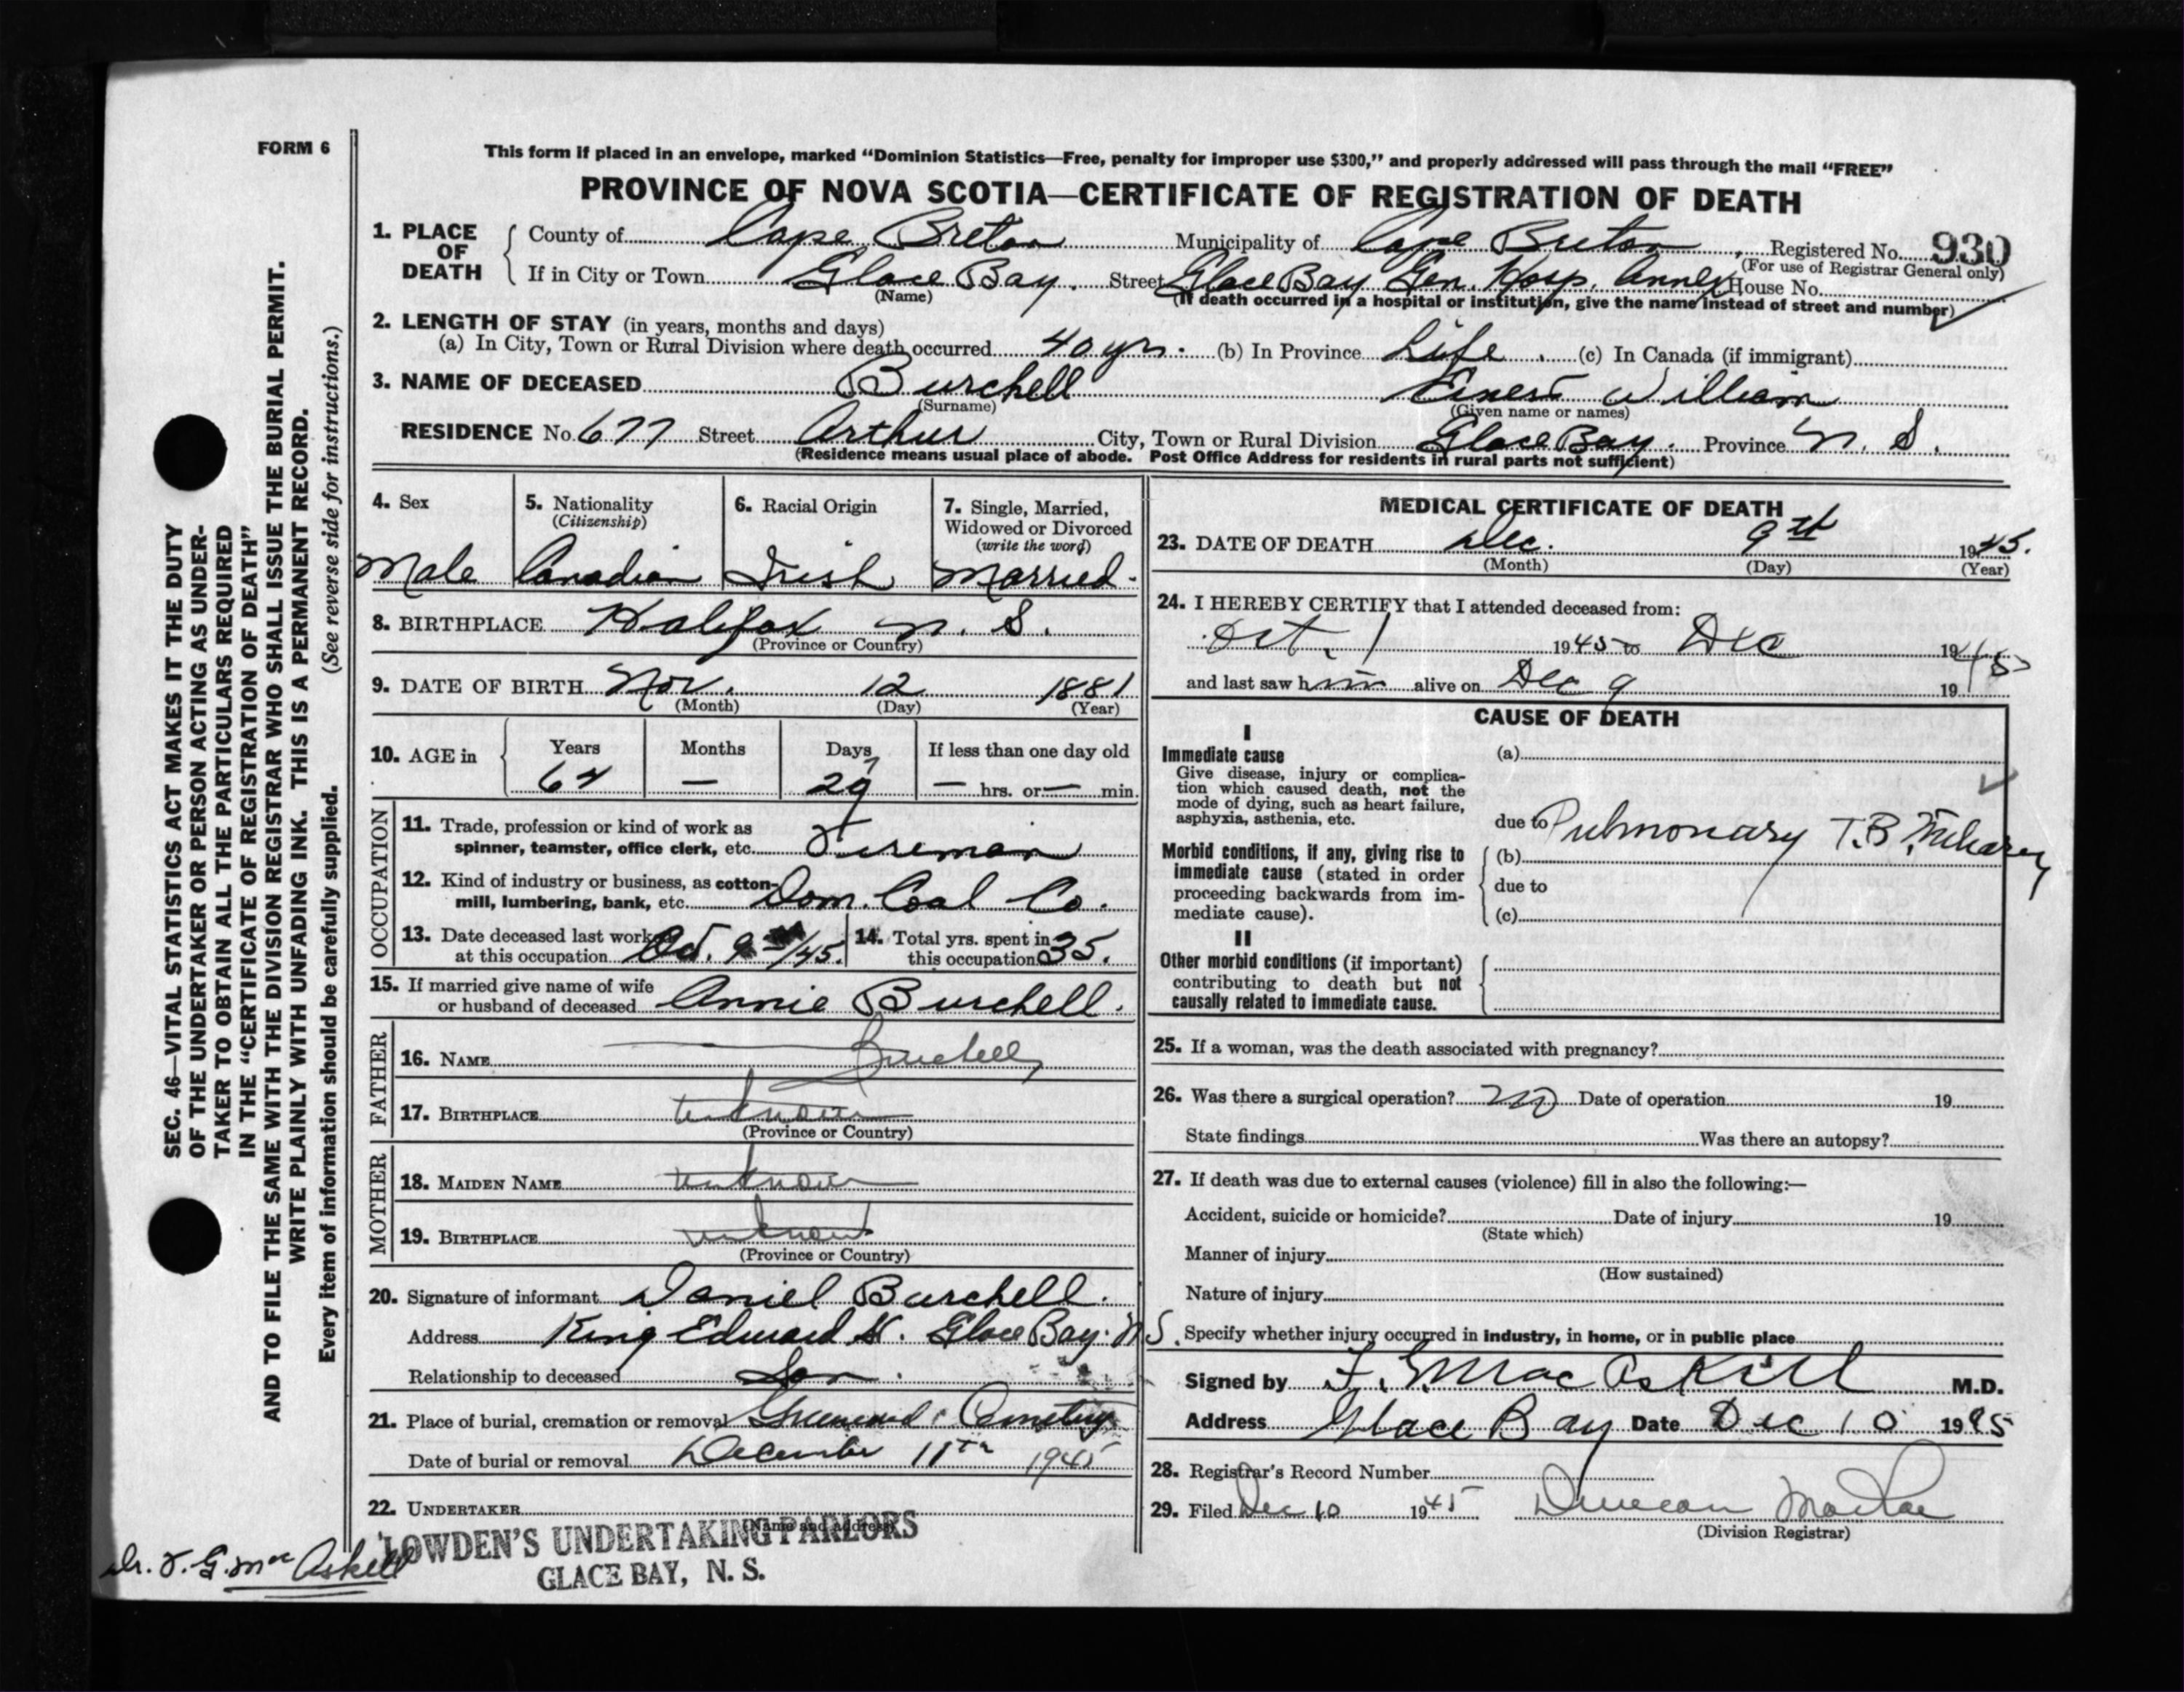 FORM 6
This form if placed in an envelope, marked “Dominion Statistics—Free, penalty for improper use $300,” and properly addressed will pass through the mail “FREE”
PROVINCE OF NOVA SCOTIA—CERTIFICATE OF REGISTRATION OF DEATH
1. PLACE OF DEATH
County of Cape Breton Municipality of Cape Breton, Registered No. 930
(For use of Registrar General only)
If in City or Town Glace Bay. Street Glace Bay Gen. Hosp. Annex House No.
(Name) (If death occurred in a hospital or institution, give the name instead of street and number)
2. LENGTH OF STAY (in years, months and days)
(a) In City, Town or Rural Division where death occurred 40 yrs. (b) In Province Life. (c) In Canada (if immigrant)
3. NAME OF DECEASED Burchell Ernest William
(Surname) (Given name or names)
RESIDENCE No. 677 Street Arthur City, Town or Rural Division Glace Bay. Province N. S.
(Residence means usual place of abode. Post Office Address for residents in rural parts not sufficient)
4. Sex
Male
5. Nationality
(Citizenship)
Canadian
6. Racial Origin
Irish
7. Single, Married,
Widowed or Divorced
(write the word)
Married.
8. BIRTHPLACE Halifax N. S.
(Province or Country)
9. DATE OF BIRTH Nov. 12 1881
(Month) (Day) (Year)
10. AGE in
Years Months Days If less than one day old
64 — 29 — hrs. or — min.
OCCUPATION
11. Trade, profession or kind of work as
spinner, teamster, office clerk, etc. Fireman
12. Kind of industry or business, as cotton-
mill, lumbering, bank, etc. Dom. Coal Co.
13. Date deceased last worked
at this occupation Oct. /45.
14. Total yrs. spent in
this occupation 35.
15. If married give name of wife
or husband of deceased Annie Burchell.
FATHER
16. NAME Burchell
17. BIRTHPLACE unknown
(Province or Country)
MOTHER
18. MAIDEN NAME unknown
19. BIRTHPLACE unknown
(Province or Country)
20. Signature of informant Daniel Burchell.
Address King Edward St. Glace Bay. N S.
Relationship to deceased Son.
21. Place of burial, cremation or removal Greenwood Cemetery
Date of burial or removal December 11th 1945
22. UNDERTAKER
(Name and address)
LOWDEN'S UNDERTAKING PARLORS
GLACE BAY, N. S.
Dr. F. G. Mac Askill
MEDICAL CERTIFICATE OF DEATH
23. DATE OF DEATH Dec. 9th 1945.
(Month) (Day) (Year)
24. I HEREBY CERTIFY that I attended deceased from:
Oct. 1 1945 to Dec 1945
and last saw him alive on Dec 9 19
CAUSE OF DEATH
I
Immediate cause
Give disease, injury or complica-
tion which caused death, not the
mode of dying, such as heart failure,
asphyxia, asthenia, etc.
(a)
due to Pulmonary T.B.
Morbid conditions, if any, giving rise to
immediate cause (stated in order
proceeding backwards from im-
mediate cause).
(b)
due to
(c)
II
Other morbid conditions (if important)
contributing to death but not
causally related to immediate cause.
25. If a woman, was the death associated with pregnancy?
26. Was there a surgical operation? no Date of operation 19
State findings Was there an autopsy?
27. If death was due to external causes (violence) fill in also the following:—
Accident, suicide or homicide? Date of injury 19
(State which)
Manner of injury
(How sustained)
Nature of injury
Specify whether injury occurred in industry, in home, or in public place
Signed by F. G Mac Askill M.D.
Address Glace Bay Date Dec 10 1945
28. Registrar's Record Number
29. Filed Dec 10 1945 Duncan MacRae
(Division Registrar)
SEC. 46—VITAL STATISTICS ACT MAKES IT THE DUTY
OF THE UNDERTAKER OR PERSON ACTING AS UNDER-
TAKER TO OBTAIN ALL THE PARTICULARS REQUIRED
IN THE “CERTIFICATE OF REGISTRATION OF DEATH”
AND TO FILE THE SAME WITH THE DIVISION REGISTRAR WHO SHALL ISSUE THE BURIAL PERMIT.
WRITE PLAINLY WITH UNFADING INK. THIS IS A PERMANENT RECORD.
Every item of information should be carefully supplied. (See reverse side for instructions.)